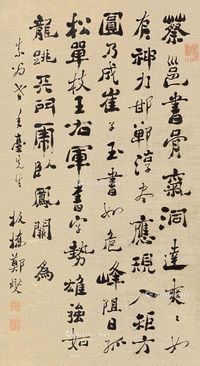 蔡邕書骨氣洞達爽〻如
有神力邯鄲淳書應規入矩方
圓乃成崔子玉書如危峰阻日孤
松單枝王右軍書字勢雄強如
龍跳天門虎臥鳳闕為
翁老年臺先生 板橋鄭燮